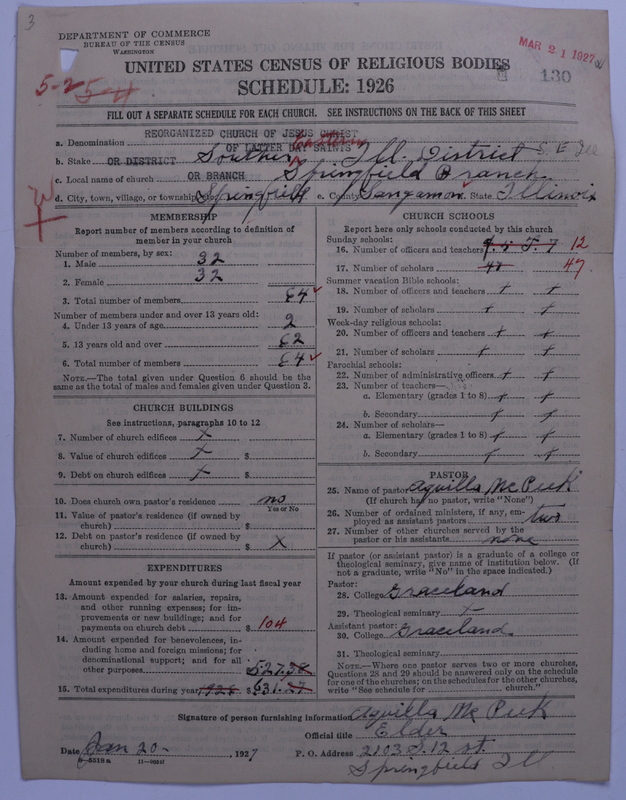 3
DEPARTMENT OF COMMERCE
BUREAU OF THE CENSUS
WASHINGTON
MAR 21 1927
UNITED STATES CENSUS OF RELIGIOUS BODIES
130
SCHEDULE: 1926
FILL OUT A SEPARATE SCHEDULE FOR EACH CHURCH. SEE INSTRUCTIONS ON THE BACK OF THIS SHEET
REORGANIZED CHURCH OF JESUS CHRIST
a. Denomination OF LATTER DAY SAINTS
b. Stake OR DISTRICT Southeastern Ill. District S. E. Ill
c. Local name of church OR BRANCH Springfield Branch
d. City, town, village, or township Springfield e. County Sangamon f. State Illinois
MEMBERSHIP
Report number of members according to definition of
member in your church
Number of members, by sex:
1. Male 32
2. Female 32
3. Total number of members 64
Number of members under and over 13 years old:
4. Under 13 years of age 2
5. 13 years old and over 62
6. Total number of members 64
NOTE.—The total given under Question 6 should be the
same as the total of males and females given under Question 3.
CHURCH BUILDINGS
See instructions, paragraphs 10 to 12
7. Number of church edifices x
8. Value of church edifices x $
9. Debt on church edifices x $
10. Does church own pastor's residence no
Yes or No
11. Value of pastor's residence (if owned by
church) $
12. Debt on pastor's residence (if owned by
church) $ X
EXPENDITURES
Amount expended by your church during last fiscal year
13. Amount expended for salaries, repairs,
and other running expenses; for im-
provements or new buildings; and for
payments on church debt $ 104
14. Amount expended for benevolences, in-
cluding home and foreign missions; for
denominational support; and for all
other purposes 527.
15. Total expenditures during year 1926 $631.27
CHURCH SCHOOLS
Report here only schools conducted by this church
Sunday schools:
16. Number of officers and teachers 12
17. Number of scholars 47
Summer vacation Bible schools:
18. Number of officers and teachers x x
19. Number of scholars x x
Week-day religious schools:
20. Number of officers and teachers x x
21. Number of scholars x x
Parochial schools:
22. Number of administrative officers x x
23. Number of teachers—
a. Elementary (grades 1 to 8) x x
b. Secondary x x
24. Number of scholars—
a. Elementary (grades 1 to 8) x x
b. Secondary x x
PASTOR
25. Name of pastor Aquilla McPeek
(If church has no pastor, write "None")
26. Number of ordained ministers, if any, em-
ployed as assistant pastors two
27. Number of other churches served by the
pastor or his assistants none
If pastor (or assistant pastor) is a graduate of a college or
theological seminary, give name of institution below. (If
not a graduate, write "No" in the space indicated.)
Pastor:
28. College Graceland
29. Theological seminary x
Assistant pastor:
30. College Graceland
31. Theological seminary
NOTE.—Where one pastor serves two or more churches,
Questions 28 and 29 should be answered only on the schedule
for one of the churches; on the schedules for the other churches,
write "See schedule for church."
Signature of person furnishing information Aquilla McPeek
Official title Elder
Date Jan 20 - , 1927 P. O. Address 2103 S. 12 st.
8-5518a 11-9654f Springfield Ill